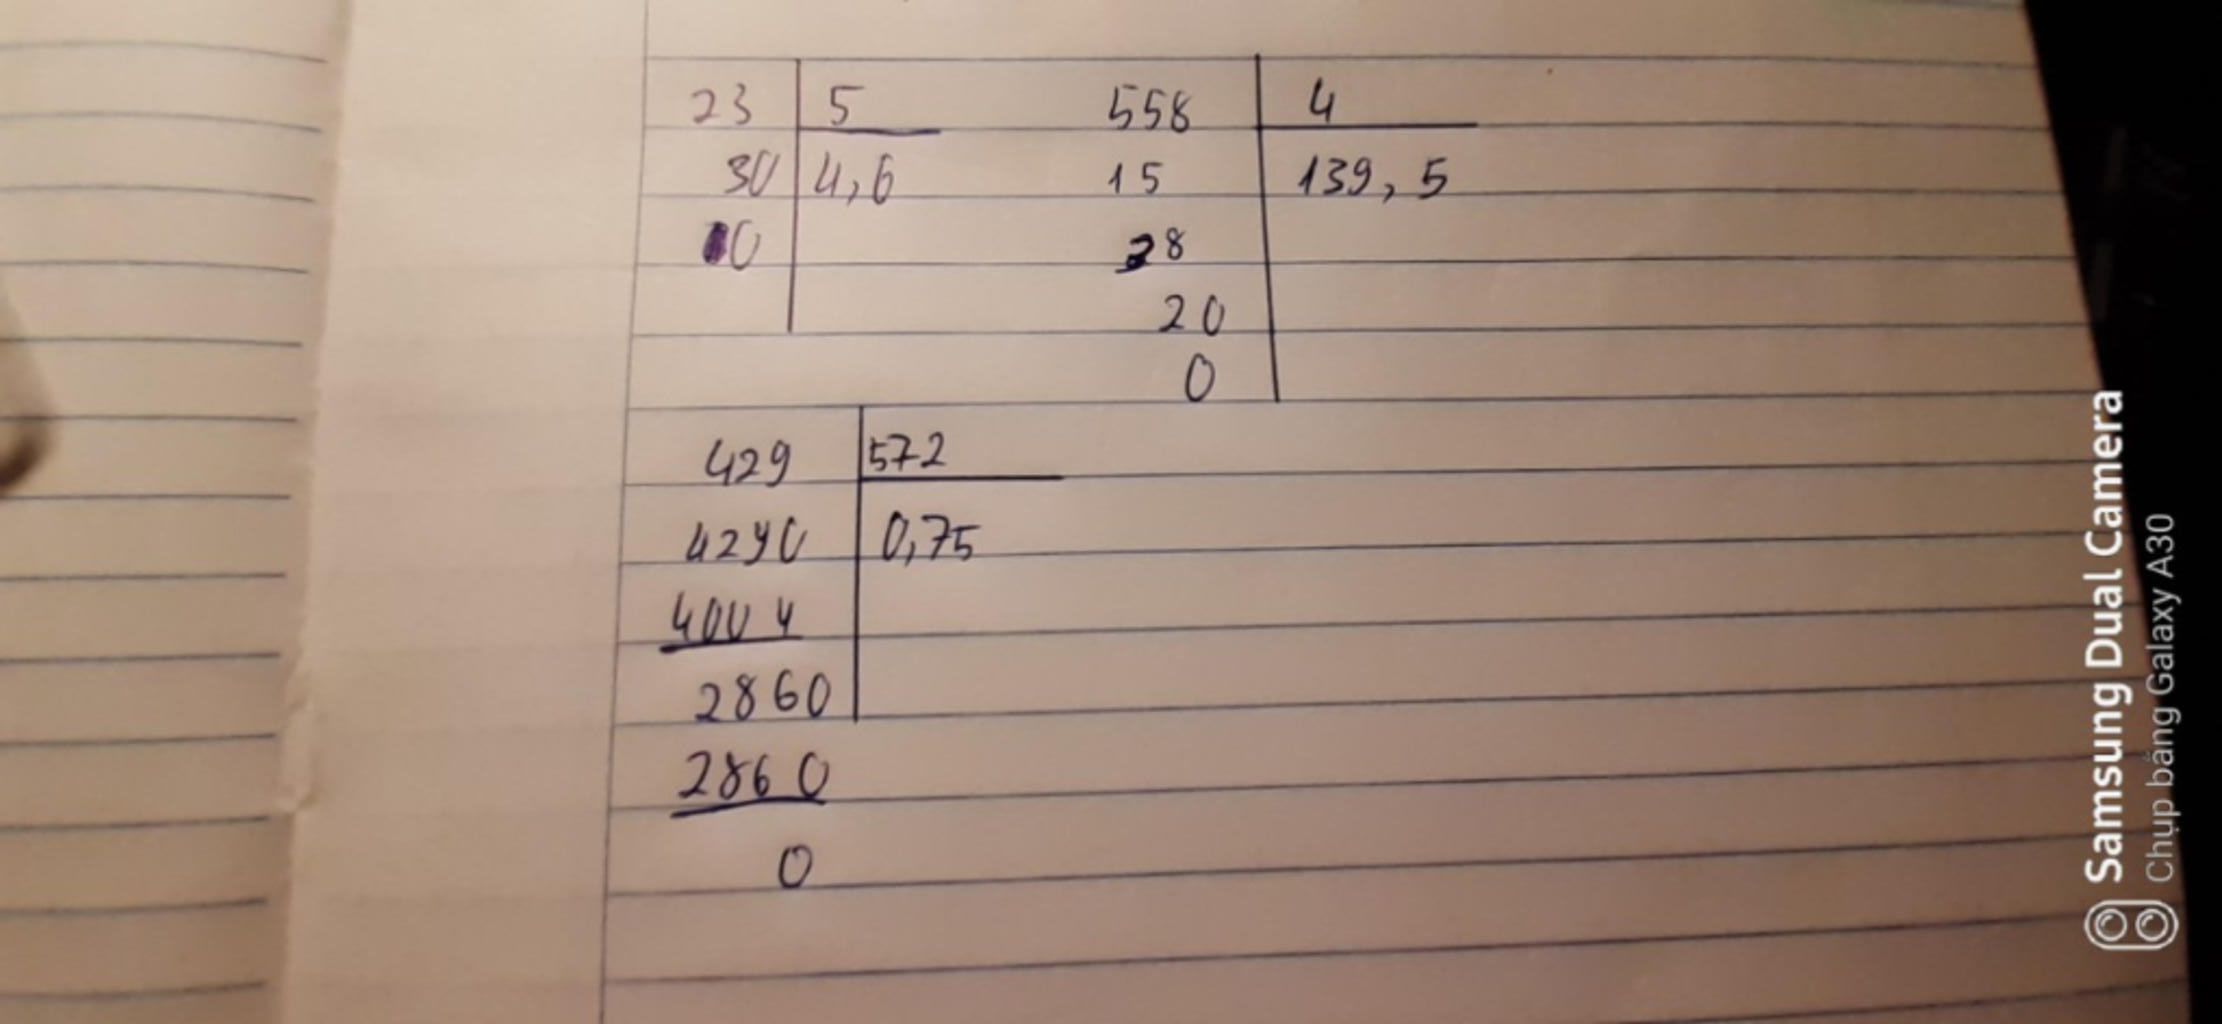 23 5
30 4,6
0
558 4
15 139,5
38
20
0
429 572
4290 0,75
4004
2860
2860
0
Samsung Dual Camera
Chụp bằng Galaxy A30